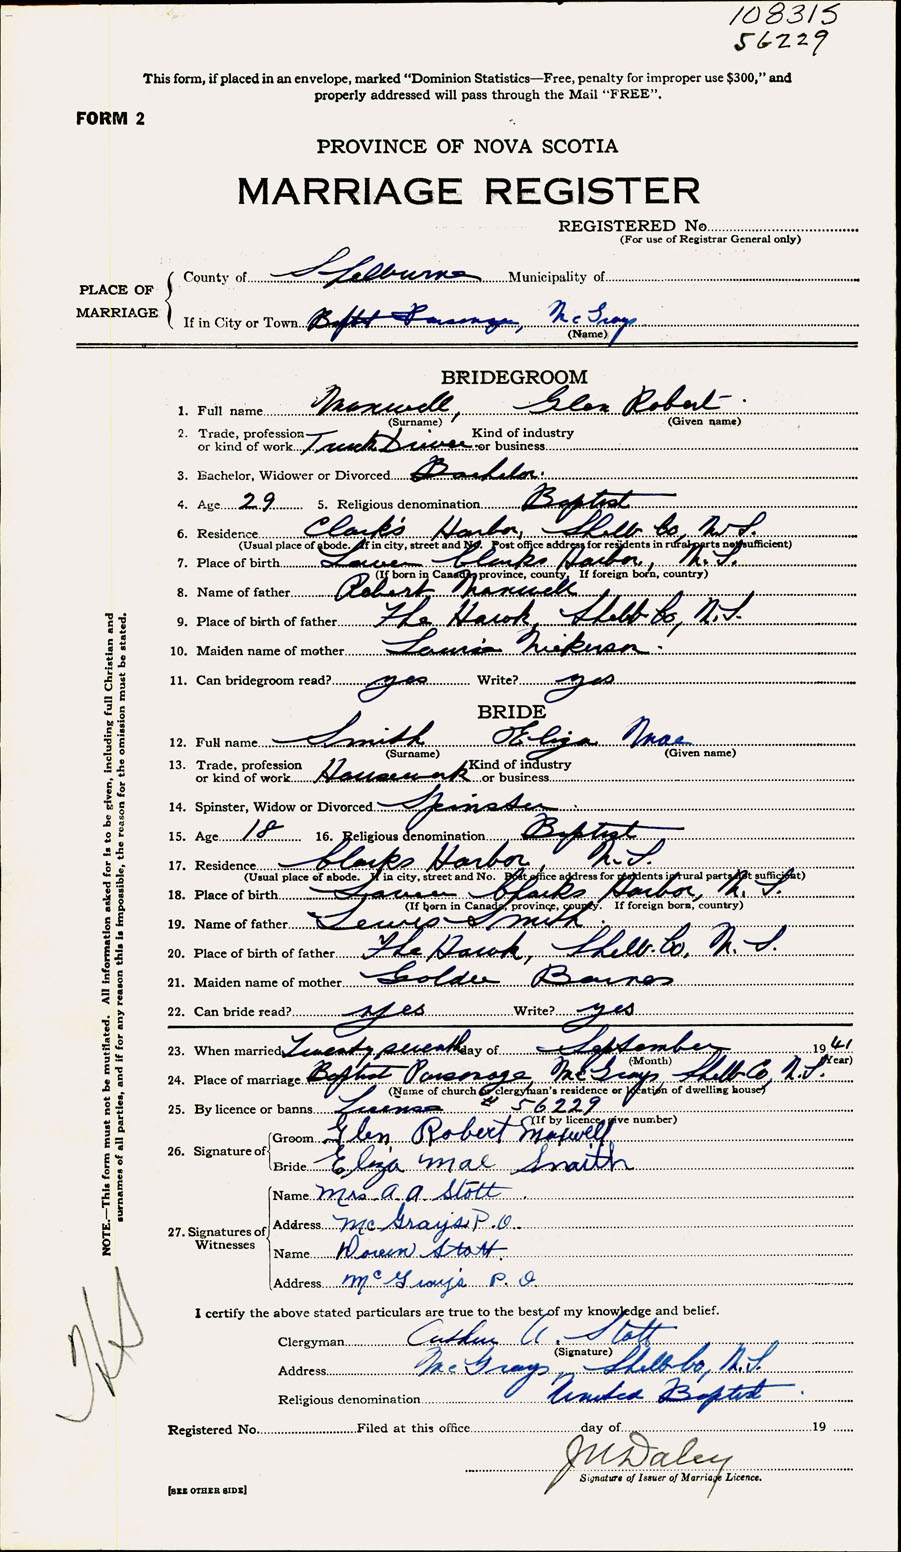 108315
56229
This form, if placed in an envelope, marked “Dominion Statistics—Free, penalty for improper use $300,” and
properly addressed will pass through the Mail “FREE”.
FORM 2
PROVINCE OF NOVA SCOTIA
MARRIAGE REGISTER
REGISTERED No.
(For use of Registrar General only)
PLACE OF MARRIAGE
County of Shelburne Municipality of
If in City or Town Baptist Parsonage, McGrays
(Name)
BRIDEGROOM
1. Full name Maxwell, Glen Robert
(Surname) (Given name)
2. Trade, profession or kind of work Truck Driver Kind of industry or business
3. Bachelor, Widower or Divorced Bachelor.
4. Age 29 5. Religious denomination Baptist
6. Residence Clark's Harbor, Shelb. Co, N.S.
(Usual place of abode. If in city, street and No. Post office address for residents in rural parts not sufficient)
7. Place of birth Lower Clarks Harbor, N.S.
(If born in Canada, province, county. If foreign born, country)
8. Name of father Robert Maxwell
9. Place of birth of father The Hawk, Shelb. Co, N.S.
10. Maiden name of mother Nickerson.
11. Can bridegroom read? yes Write? yes
BRIDE
12. Full name Smith Eliza Mae
(Surname) (Given name)
13. Trade, profession or kind of work Housework Kind of industry or business
14. Spinster, Widow or Divorced Spinster.
15. Age 18 16. Religious denomination Baptist
17. Residence Clarks Harbor, N.S.
(Usual place of abode. If in city, street and No. Post office address for residents in rural parts not sufficient)
18. Place of birth Lower Clarks Harbor, N.S.
(If born in Canada, province, county. If foreign born, country)
19. Name of father Lewis Smith.
20. Place of birth of father The Hawk, Shelb. Co, N.S.
21. Maiden name of mother Goldie Barnes
22. Can bride read? yes Write? yes
23. When married Twenty seventh day of September 1941
(Month) (Year)
24. Place of marriage Baptist Parsonage McGrays Shelb Co, N.S.
(Name of church or clergyman's residence or location of dwelling house)
25. By licence or banns License " 56229
(If by licence, give number)
26. Signature of
Groom Glen Robert Maxwell
Bride Eliza Mae Smith
27. Signatures of Witnesses
Name Mrs A A Stott
Address McGrays P.O.
Name Doreen Stott
Address McGray's P.O.
I certify the above stated particulars are true to the best of my knowledge and belief.
Clergyman Arthur A. Stott
(Signature)
Address McGrays, Shelb Co, N.S.
Religious denomination United Baptist.
Registered No. Filed at this office day of 19
J M Daley
Signature of Issuer of Marriage Licence.
[SEE OTHER SIDE]
NOTE.—This form must not be mutilated. All information asked for is to be given, including full Christian and
surnames of all parties, and if for any reason this is impossible, the reason for the omission must be stated.